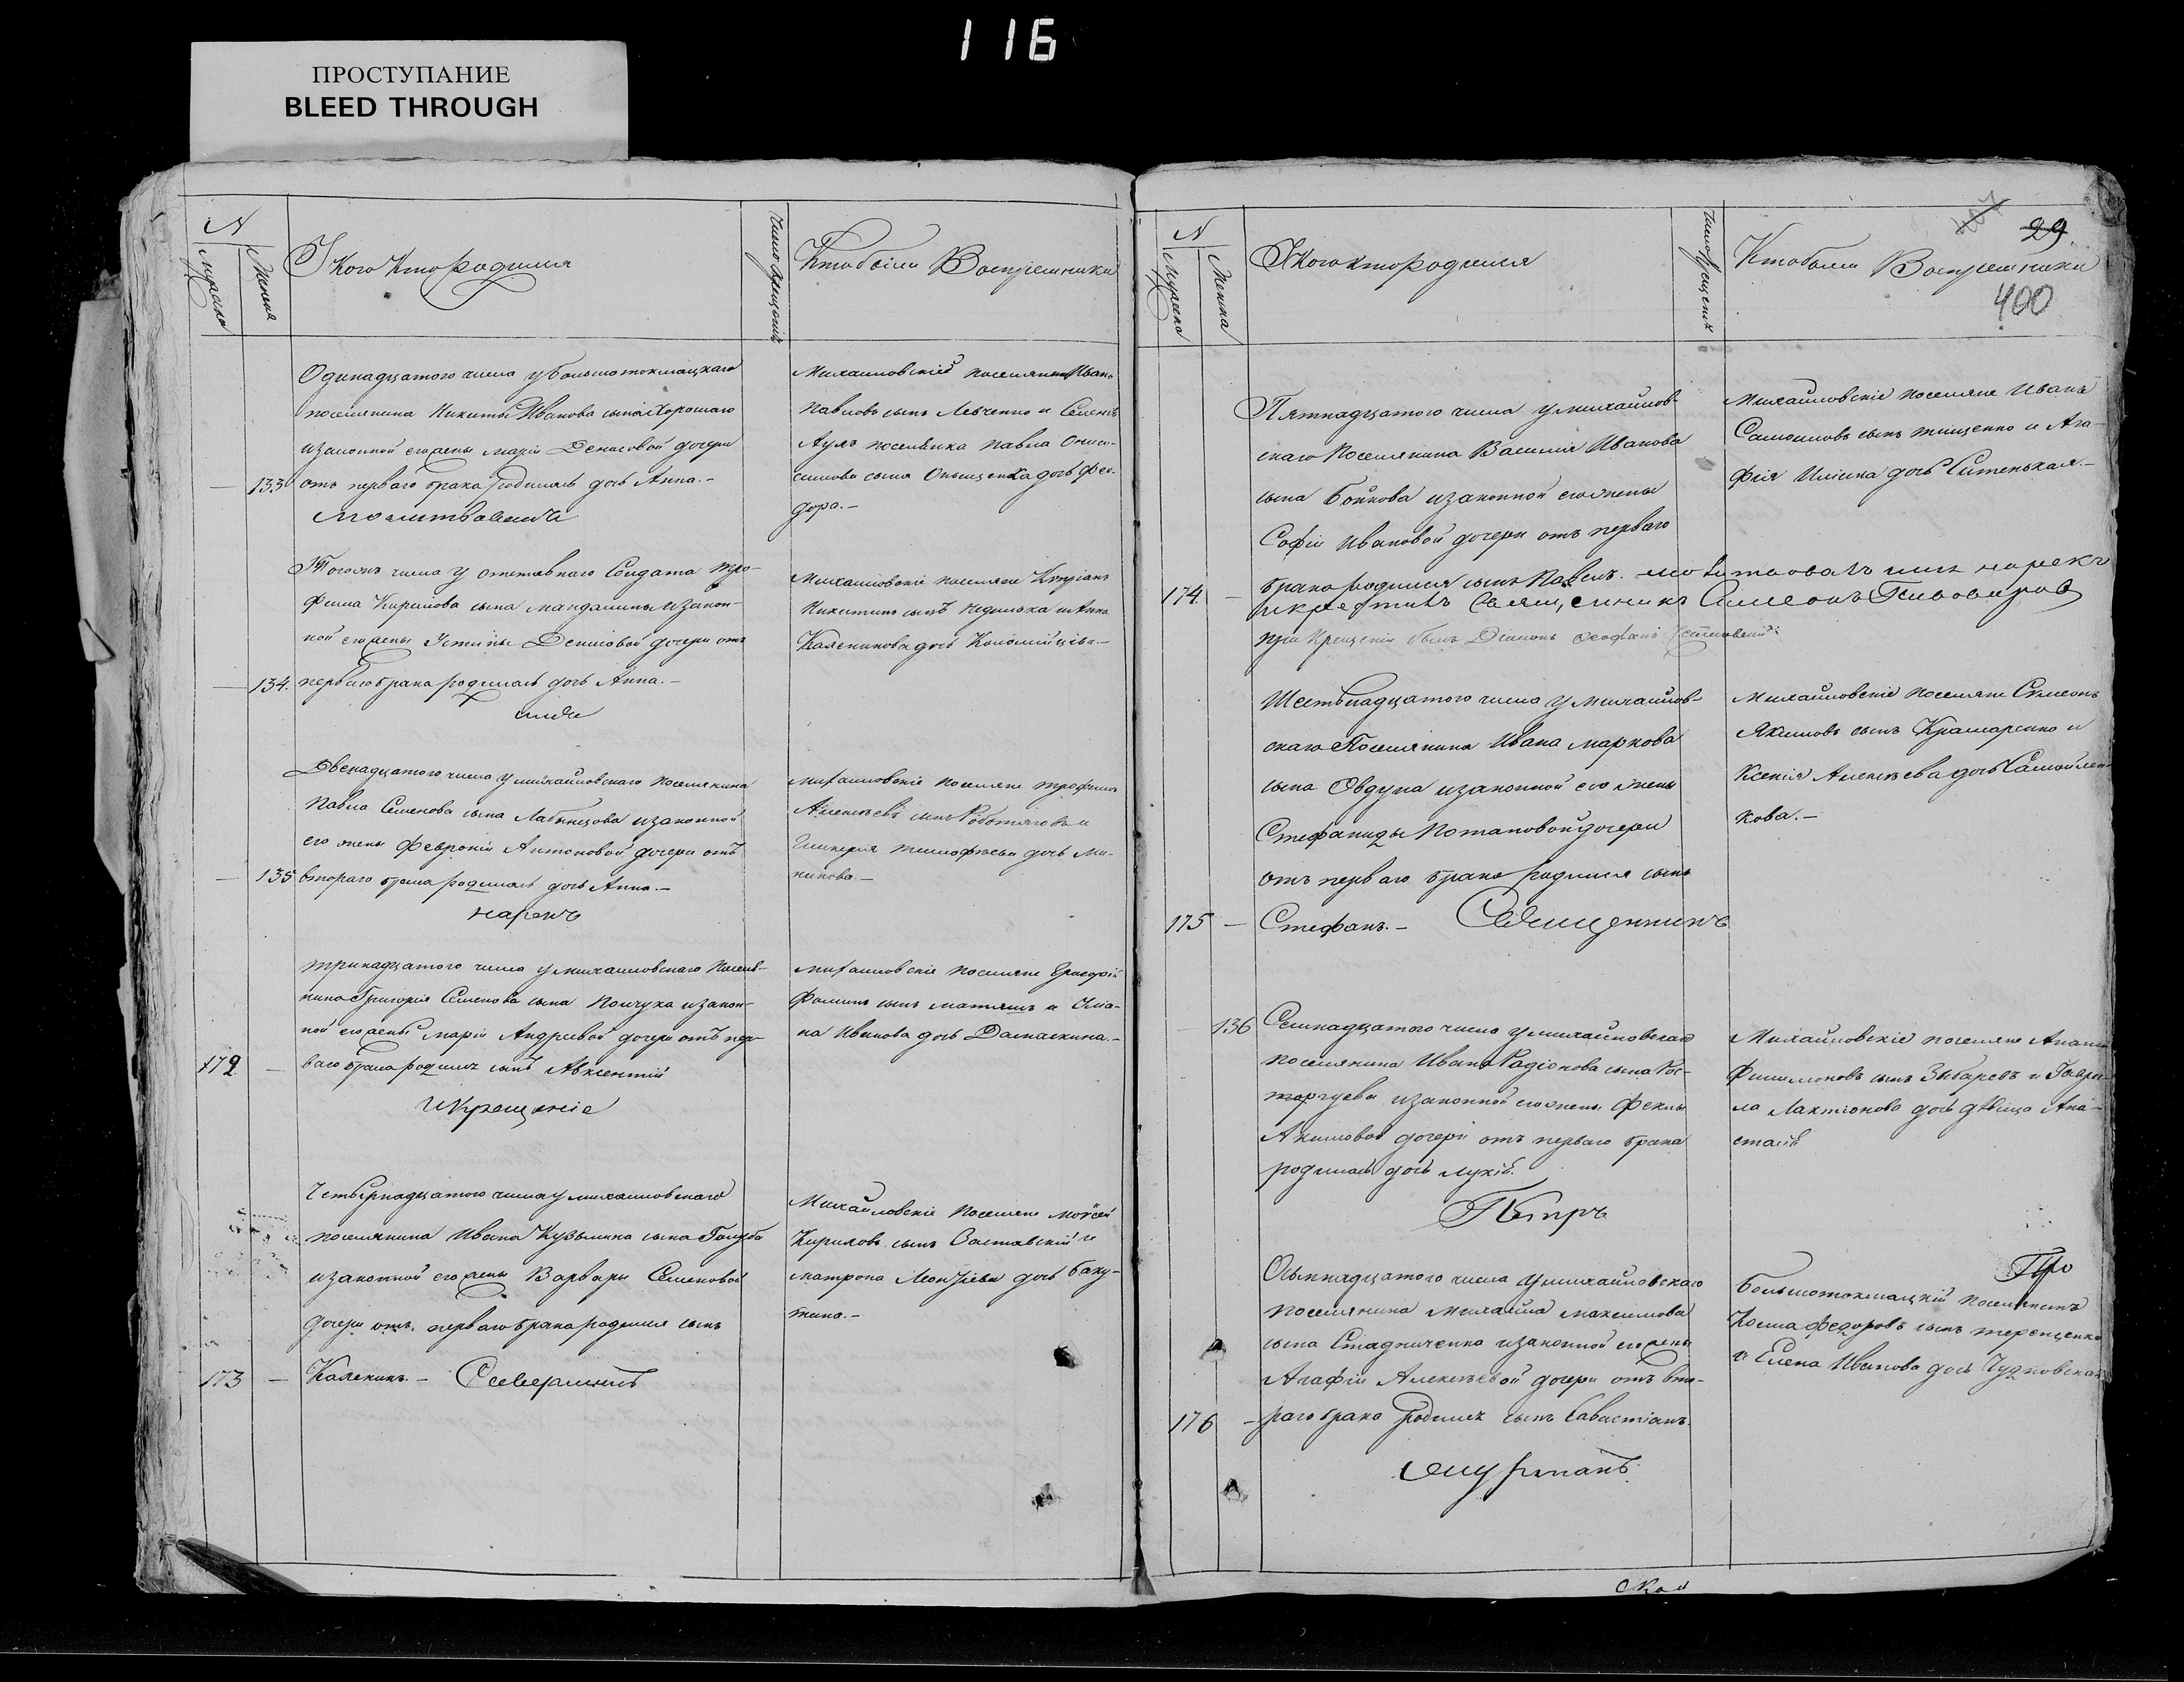 116
ПРОСТУПАНИЕ
BLEED THROUGH
N
Мужеска
Женска
У Кого Кто Родился
Число Крещения
Кто были Восприемники
Одинадцатого числа у большотокмацкаго
поселянина Никиты Иванова сына Хорошаго
и законной его жены Марiи Денисовой дочери
133 отъ перваго брака родилась дочь Анна.-
Молитвовалъ
Михаиловскiй поселянин Иванъ
Павловъ сынъ Левченко и Семенъ
поселянка Павла Ониси-
мова сына Онищенка дочь Фео-
дора.-
Того жъ числа у отставнаго Солдата Тро-
фима Кирилова сына и закон-
ной его жены Устины Денисовой дочери отъ
134. перваго брака родилась дочь Анна.-
имя
Михаиловскiе поселяне Кипрiанъ
Никитинъ сынъ и Анна
Каленикова дочь Коломiйцева.-
Двенадцатого числа у михайловскаго поселянина
Павла Семенова сына Лабынцова и законной
его жены Февронiи Антоновой дочери отъ
135 втораго брака родилась дочь Анна.-
нарекъ
Михаиловскiе поселяне Трофимъ
Алексѣевъ сынъ Роботяговъ и
Гликерия Тимофѣева дочь Ма-
никова.-
Тринадцатого числа у михаиловскаго посел-
нина Григорiя Семенова сына Полчука и закон-
ной его жены Марiи Андреевой дочери отъ пер-
172 - ваго брака родился сынъ Авксентiй
и Крещенiе
Михаиловскiе поселяне
Фоминъ сынъ и Улiа-
на Иванова дочь Дамаскина.-
Четырнадцатого числа у михаиловскаго
поселянина Ивана Кузьмина сына Голуба
и законной его жены Варвары Семеновой
дочери отъ перваго брака родился сынъ
173 - Каленикъ.- Совершилъ
Михайловскiе поселяне Моѵсей
Кириловъ сынъ Заставскiй и
Матрона Леонтiева дочь Баку-
тина.-
N
Мужеска
Женска
У кого кто родился
Число крещения
Кто были Восприемники
29
400
Пятнадцатого числа у михайлов-
скаго Поселянина Василия Иванова
сына Бойкова и законной его жены
Софiи Ивановой дочери отъ перваго
174 - брака родился сынъ Павелъ. молитвовалъ имя нарекъ
и крестилъ Священникъ Симеонъ Пивоваровъ
при Крещенiи былъ Дiаконъ
Михайловскiе поселяне Иванъ
Самоиловъ сынъ Тищенко и Ага-
фiя Илiина дочь Ситенькая.-
Шестьнадцатого числа у михайлов-
скаго Поселянина Ивана Маркова
сына Овдуна и законной его жены
Стефаниды Потаповой дочери
отъ перваго брака родился сынъ
175 - Стефанъ.- Священникъ
Михайловскiе поселяне Симеонъ
Якимовъ сынъ Крамаренко и
Ксенiя Алексѣева дочь Самойлен-
кова.-
136 Семнадцатого числа у михайловскаго
поселянина Ивана Радiонова сына Рос-
торгуева и законной его жены Феклы
Акимовой дочери отъ перваго брака
родилась дочь
Петръ
Михайловскiе поселяне Ананiй
Филимоновъ сынъ Зыбаревъ и Гаври-
ла Лактiонова дочь дѣвица Ана-
стасiя
Осьмнадцатого числа у михайловскаго
поселянина Михаила Максимова
сына Стадниченка и законной его жены
Агафiи Алексѣевой дочери отъ вто-
176 - раго брака родился сынъ Савастiанъ
Большотокмацкiй поселянинъ
Косма Федоровъ сынъ Терещенко
и Елена Иванова дочь Чудновская